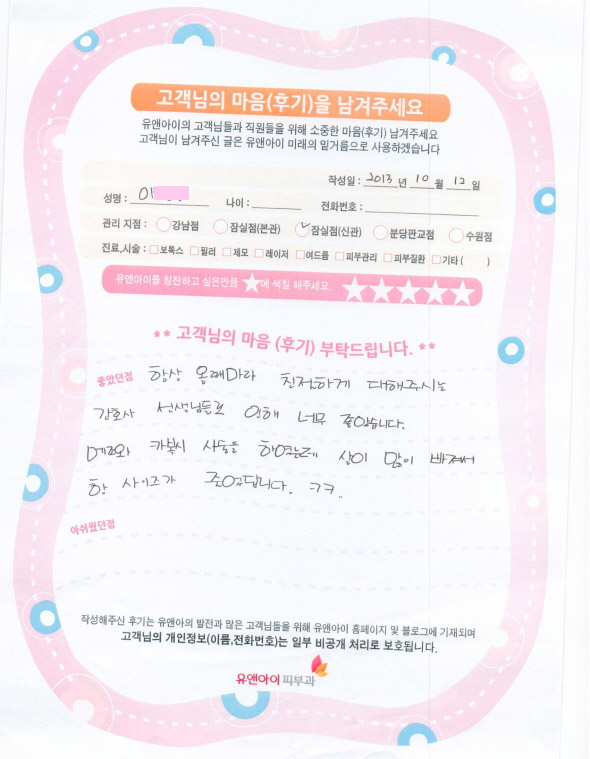 고객님의 마음(후기)을 남겨주세요
유앤아이의 고객님들과 직원들을 위해 소중한 마음(후기) 남겨주세요
고객님이 남겨주신 글은 유앤아이 미래의 밑거름으로 사용하겠습니다
작성일 : 2013 년 10 월 12 일
성명 : 이 나이 : 전화번호 :
관리 지점 : 강남점 잠실점(본관) 잠실점(신관) 분당판교점 수원점
진료,시술 : 보톡스 필러 제모 레이저 여드름 피부관리 피부질환 기타 ( )
유앤아이를 칭찬하고 싶은만큼 ★에 색칠 해주세요. ★★★★★
** 고객님의 마음 (후기) 부탁드립니다. **
좋았던점 항상 올때마다 친절하게 대해주시는
간호사 선생님들로 인해 너무 좋았습니다.
메조와 카복시 시술을 하였는데 살이 많이 빠져서
한 사이즈가 줄었답니다. ㅋㅋ..
아쉬웠던점
작성해주신 후기는 유앤아의 발전과 많은 고객님들을 위해 유앤아이 홈페이지 및 블로그에 기재되며
고객님의 개인정보(이름,전화번호)는 일부 비공개 처리로 보호됩니다.
유앤아이 피부과